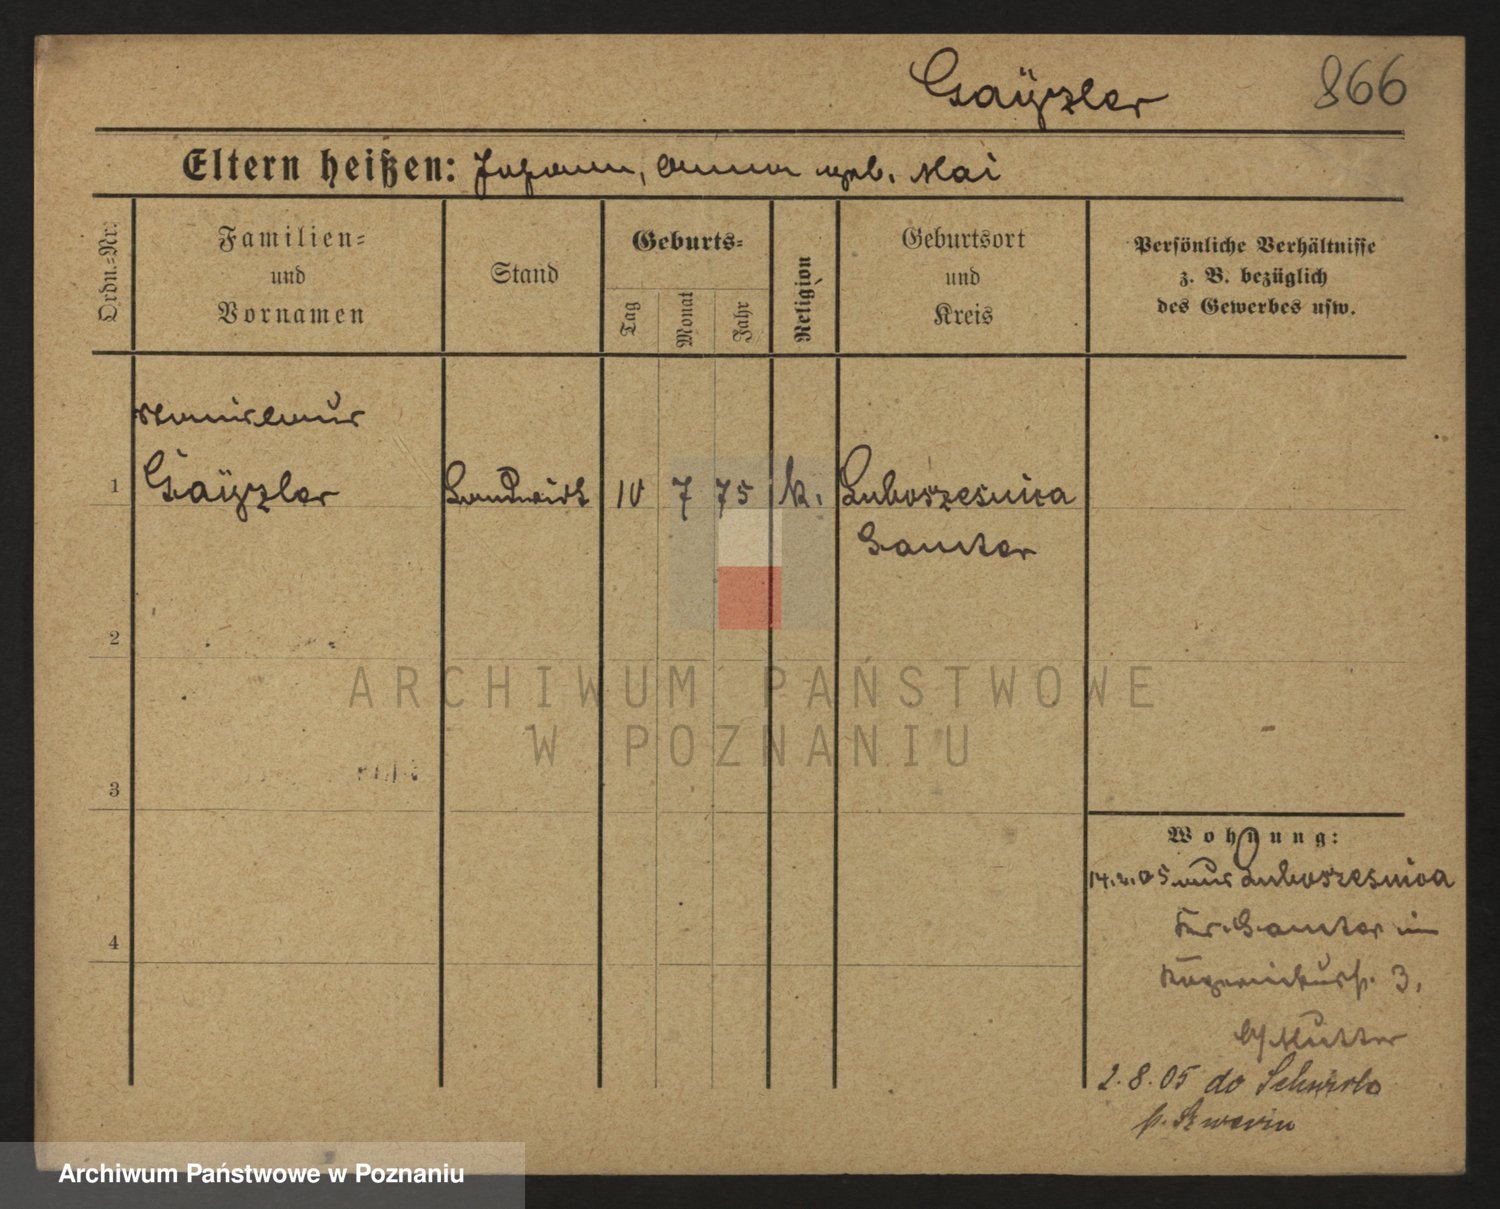 Gayzler 866
Eltern heißen: Johann, Anna geb. Mai
Ordn.-Nr.
Familien-
und
Vornamen
Stand
Geburts-
Tag
Monat
Jahr
Religion
Geburtsort
und
Kreis
Persönliche Verhältnisse
z. B. bezüglich
des Gewerbes usw.
Stanislaus
1 Gayzler Landwirt 10 7 75 k. Luboszesnica
Samter
2
3
4
Wohnung:
14.2.05 aus Luboszesnica
Kr. Samter in
3.
b/ Mutter
2. 8. 05 do
ARCHIWUM PAŃSTWOWE
W POZNANIU
Archiwum Państwowe w Poznaniu